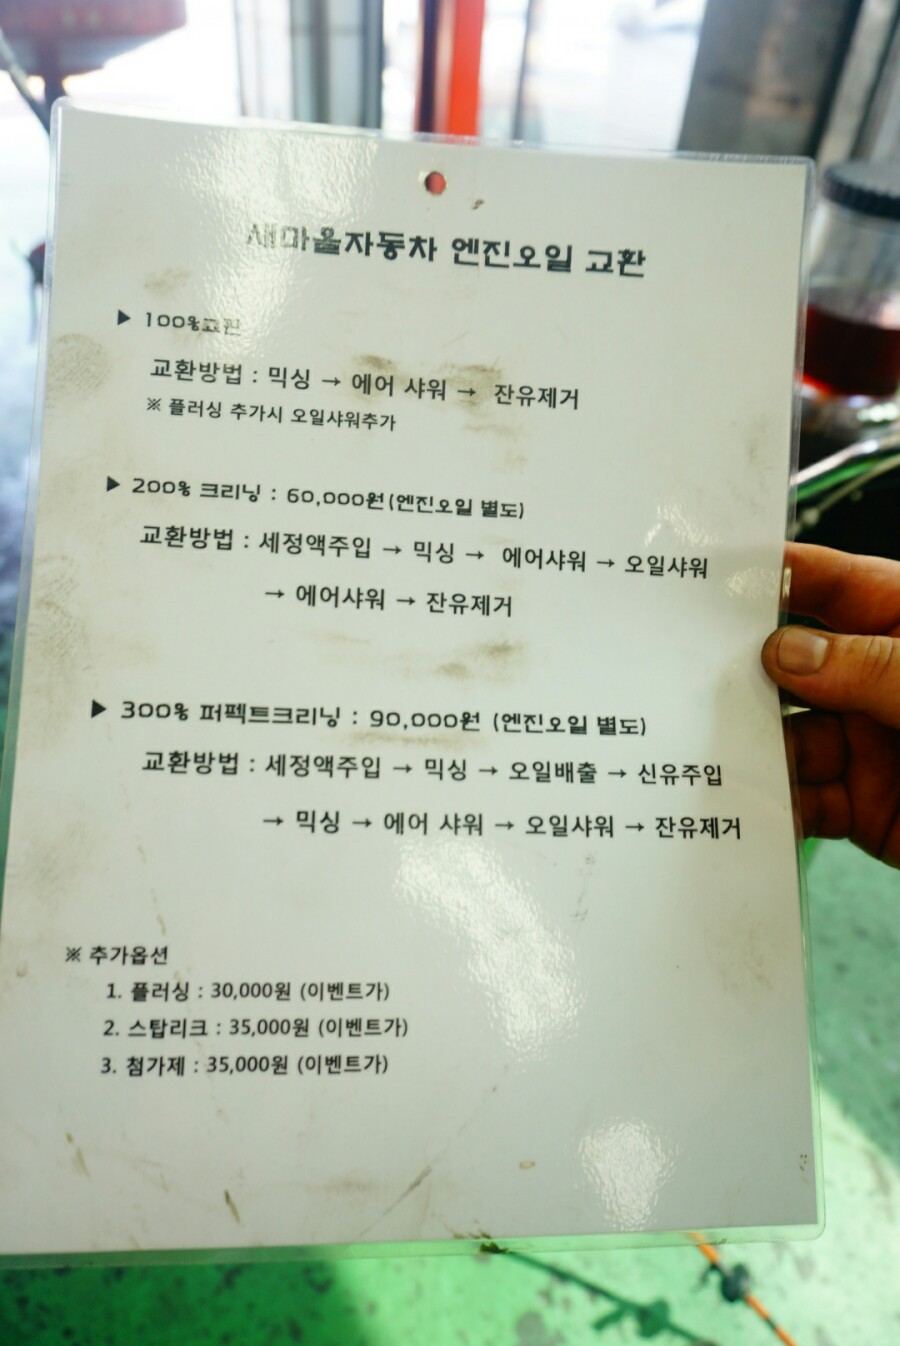 새마을자동차 엔진오일 교환
▶ 100%교환
교환방법 : 믹싱 → 에어 샤워 → 잔유제거
※ 플러싱 추가시 오일샤워추가
▶ 200% 크리닝 : 60,000원(엔진오일 별도)
교환방법 : 세정액주입 → 믹싱 → 에어샤워 → 오일샤워
→ 에어샤워 → 잔유제거
▶ 300% 퍼펙트크리닝 : 90,000원 (엔진오일 별도)
교환방법 : 세정액주입 → 믹싱 → 오일배출 → 신유주입
→ 믹싱 → 에어 샤워 → 오일샤워 → 잔유제거
※ 추가옵션
1. 플러싱 : 30,000원 (이벤트가)
2. 스탑리크 : 35,000원 (이벤트가)
3. 첨가제 : 35,000원 (이벤트가)